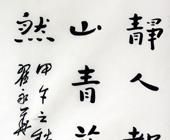 靜人都
山青
然
甲午之秋
翟永華